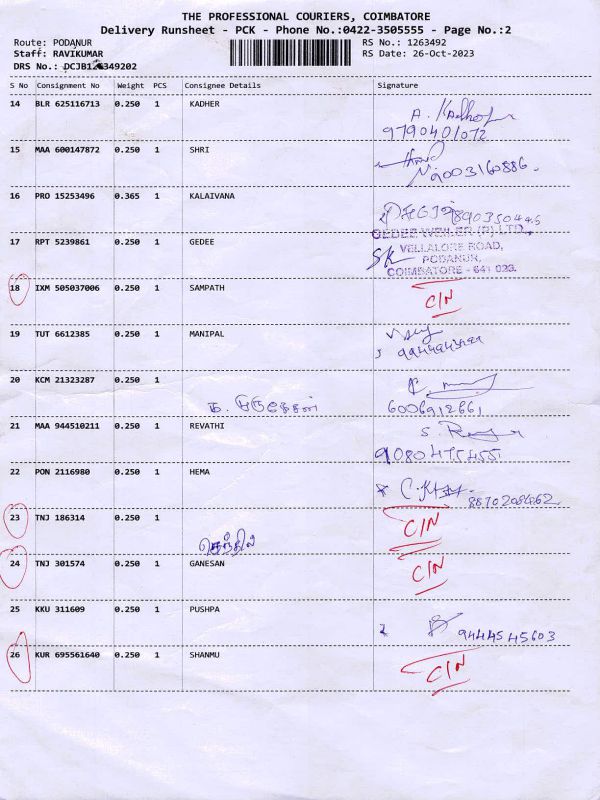 THE PROFESSIONAL COURIERS, COIMBATORE
Delivery Runsheet - PCK - Phone No.:0422-3505555 - Page No.:2
Route: PODANUR RS No.: 1263492
Staff: RAVIKUMAR RS Date: 26-Oct-2023
DRS No.:
S No Consignment No Weight PCS Consignee Details Signature
14 BLR 625116713 0.250 1 KADHER
9790401072
15 MAA 600147872 0.250 1 SHRI
9003160886
16 PRO 15253496 0.365 1 KALAIVANA
890350445
17 RPT 5239861 0.250 1 GEDEE
GEDEE WEILER (P) LTD.,
VELLALORE ROAD,
PODANUR,
COIMBATORE - 641 023.
18 IXM 505037006 0.250 1 SAMPATH C/N
19 TUT 6612385 0.250 1 MANIPAL
20 KCM 21323287 0.250 1
6006912661
21 MAA 944510211 0.250 1 REVATHI
9080475455
22 PON 2116980 0.250 1 HEMA
8870208462
23 TNJ 186314 0.250 1 C/N
24 TNJ 301574 0.250 1 GANESAN C/N
25 KKU 311609 0.250 1 PUSHPA
9444545603
26 KUR 695561640 0.250 1 SHANMU C/N